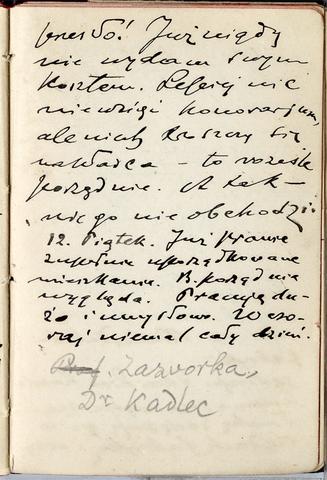 presło! Już nigdy
nie wydam swym
kosztem. Lepiej nic
nie wziąć honorarjum,
ale niech troszczy się
nakładca – to rozeszle
porządnie. A tak –
nic go nie obchodzi.
12. Piątek. Już prawie
zupełnie uporządkowane
mieszkanie. B. porządnie
wygląda. Pracuję du-
żo i umysłowo. Wczo-
raj niemal cały dzień.
Prof. Zazvorka,
Dr Kadlec